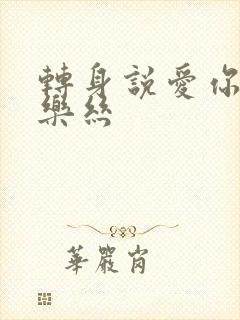 轉身説愛你
樂絲
華嚴崗